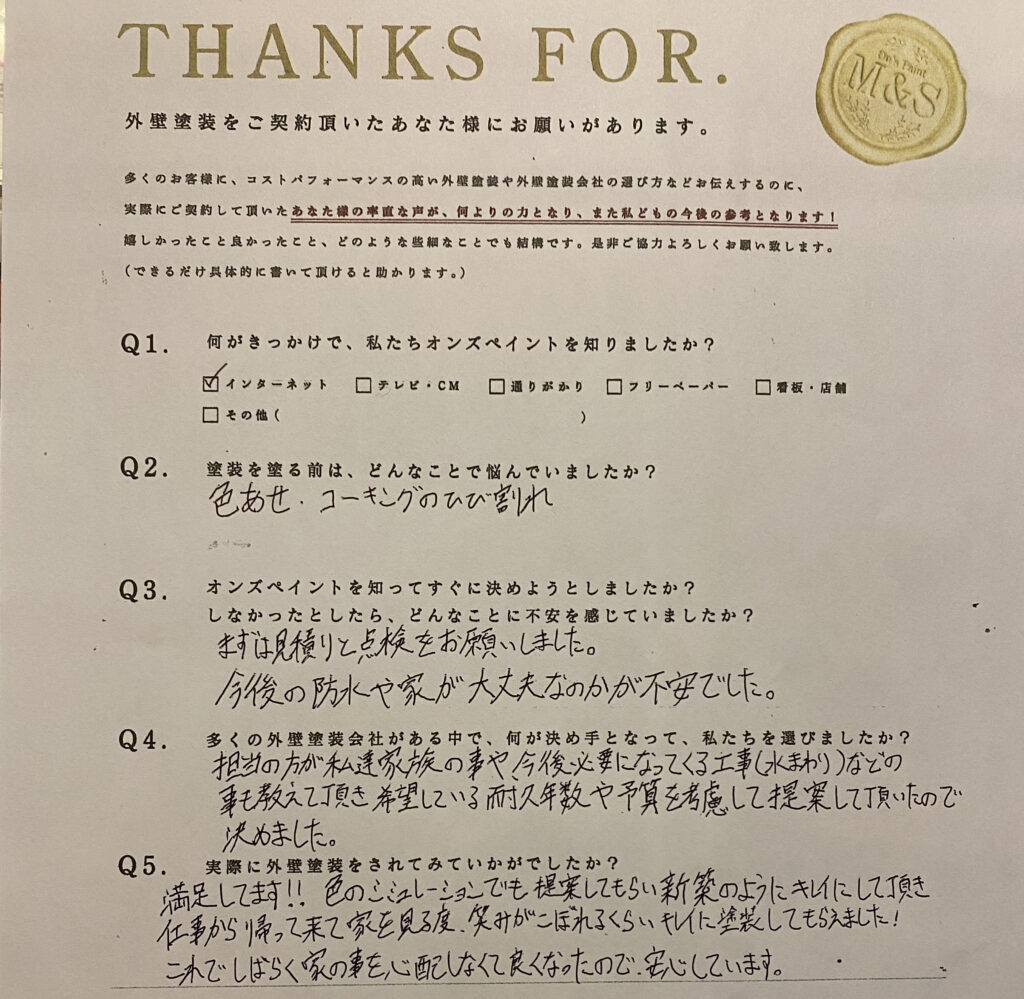 THANKS FOR.
On's Paint
M&S
外壁塗装をご契約頂いたあなた様にお願いがあります。
多くのお客様に、コストパフォーマンスの高い外壁塗装や外壁塗装会社の選び方などお伝えするのに、
実際にご契約して頂いたあなた様の率直な声が、何よりの力となり、また私どもの今後の参考となります!
嬉しかったこと良かったこと、どのような些細なことでも結構です。是非ご協力よろしくお願い致します。
(できるだけ具体的に書いて頂けると助かります。)
Q1. 何がきっかけで、私たちオンズペイントを知りましたか?
☑インターネット □テレビ・CM □通りがかり □フリーペーパー □看板・店舗
□その他( )
Q2. 塗装を塗る前は、どんなことで悩んでいましたか?
色あせ・コーキングのひび割れ
Q3. オンズペイントを知ってすぐに決めようとしましたか?
しなかったとしたら、どんなことに不安を感じていましたか?
まずは見積りと点検をお願いしました。
今後の防水や家が大丈夫なのかが不安でした。
Q4. 多くの外壁塗装会社がある中で、何が決め手となって、私たちを選びましたか?
担当の方が私達家族の事や、今後必要になってくる工事(水まわり)などの
事も教えて頂き希望している耐久年数や予算を考慮して提案して頂いたので
決めました。
Q5. 実際に外壁塗装をされてみていかがでしたか?
満足してます!! 色のシミュレーションでも提案してもらい新築のようにキレイにして頂き
仕事から帰って来て家を見る度、笑みがこぼれるくらいキレイに塗装してもらえました!
これでしばらく家の事を心配しなくて良くなったので、安心しています。